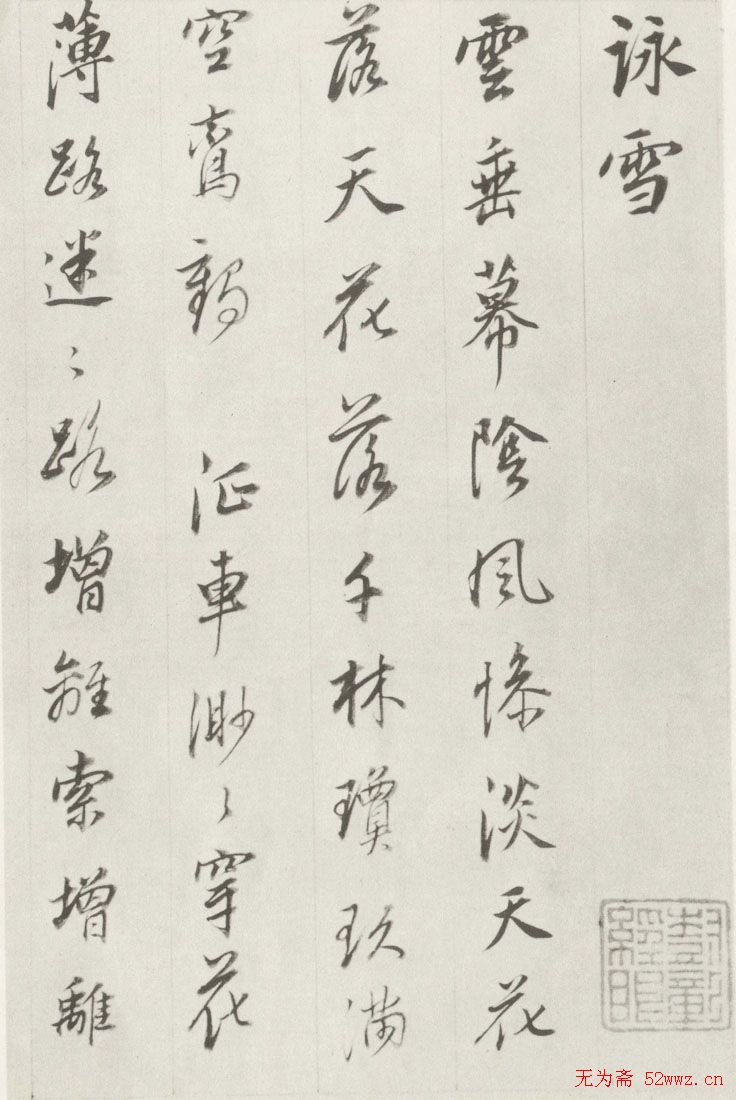 詠雪
雲垂幕陰風慘淡天花
落天花落千林瓊玖滿
空鸞鶴 征車渺〻穿花
薄路迷〻路增離索增離
无为斋 52wwz.cn